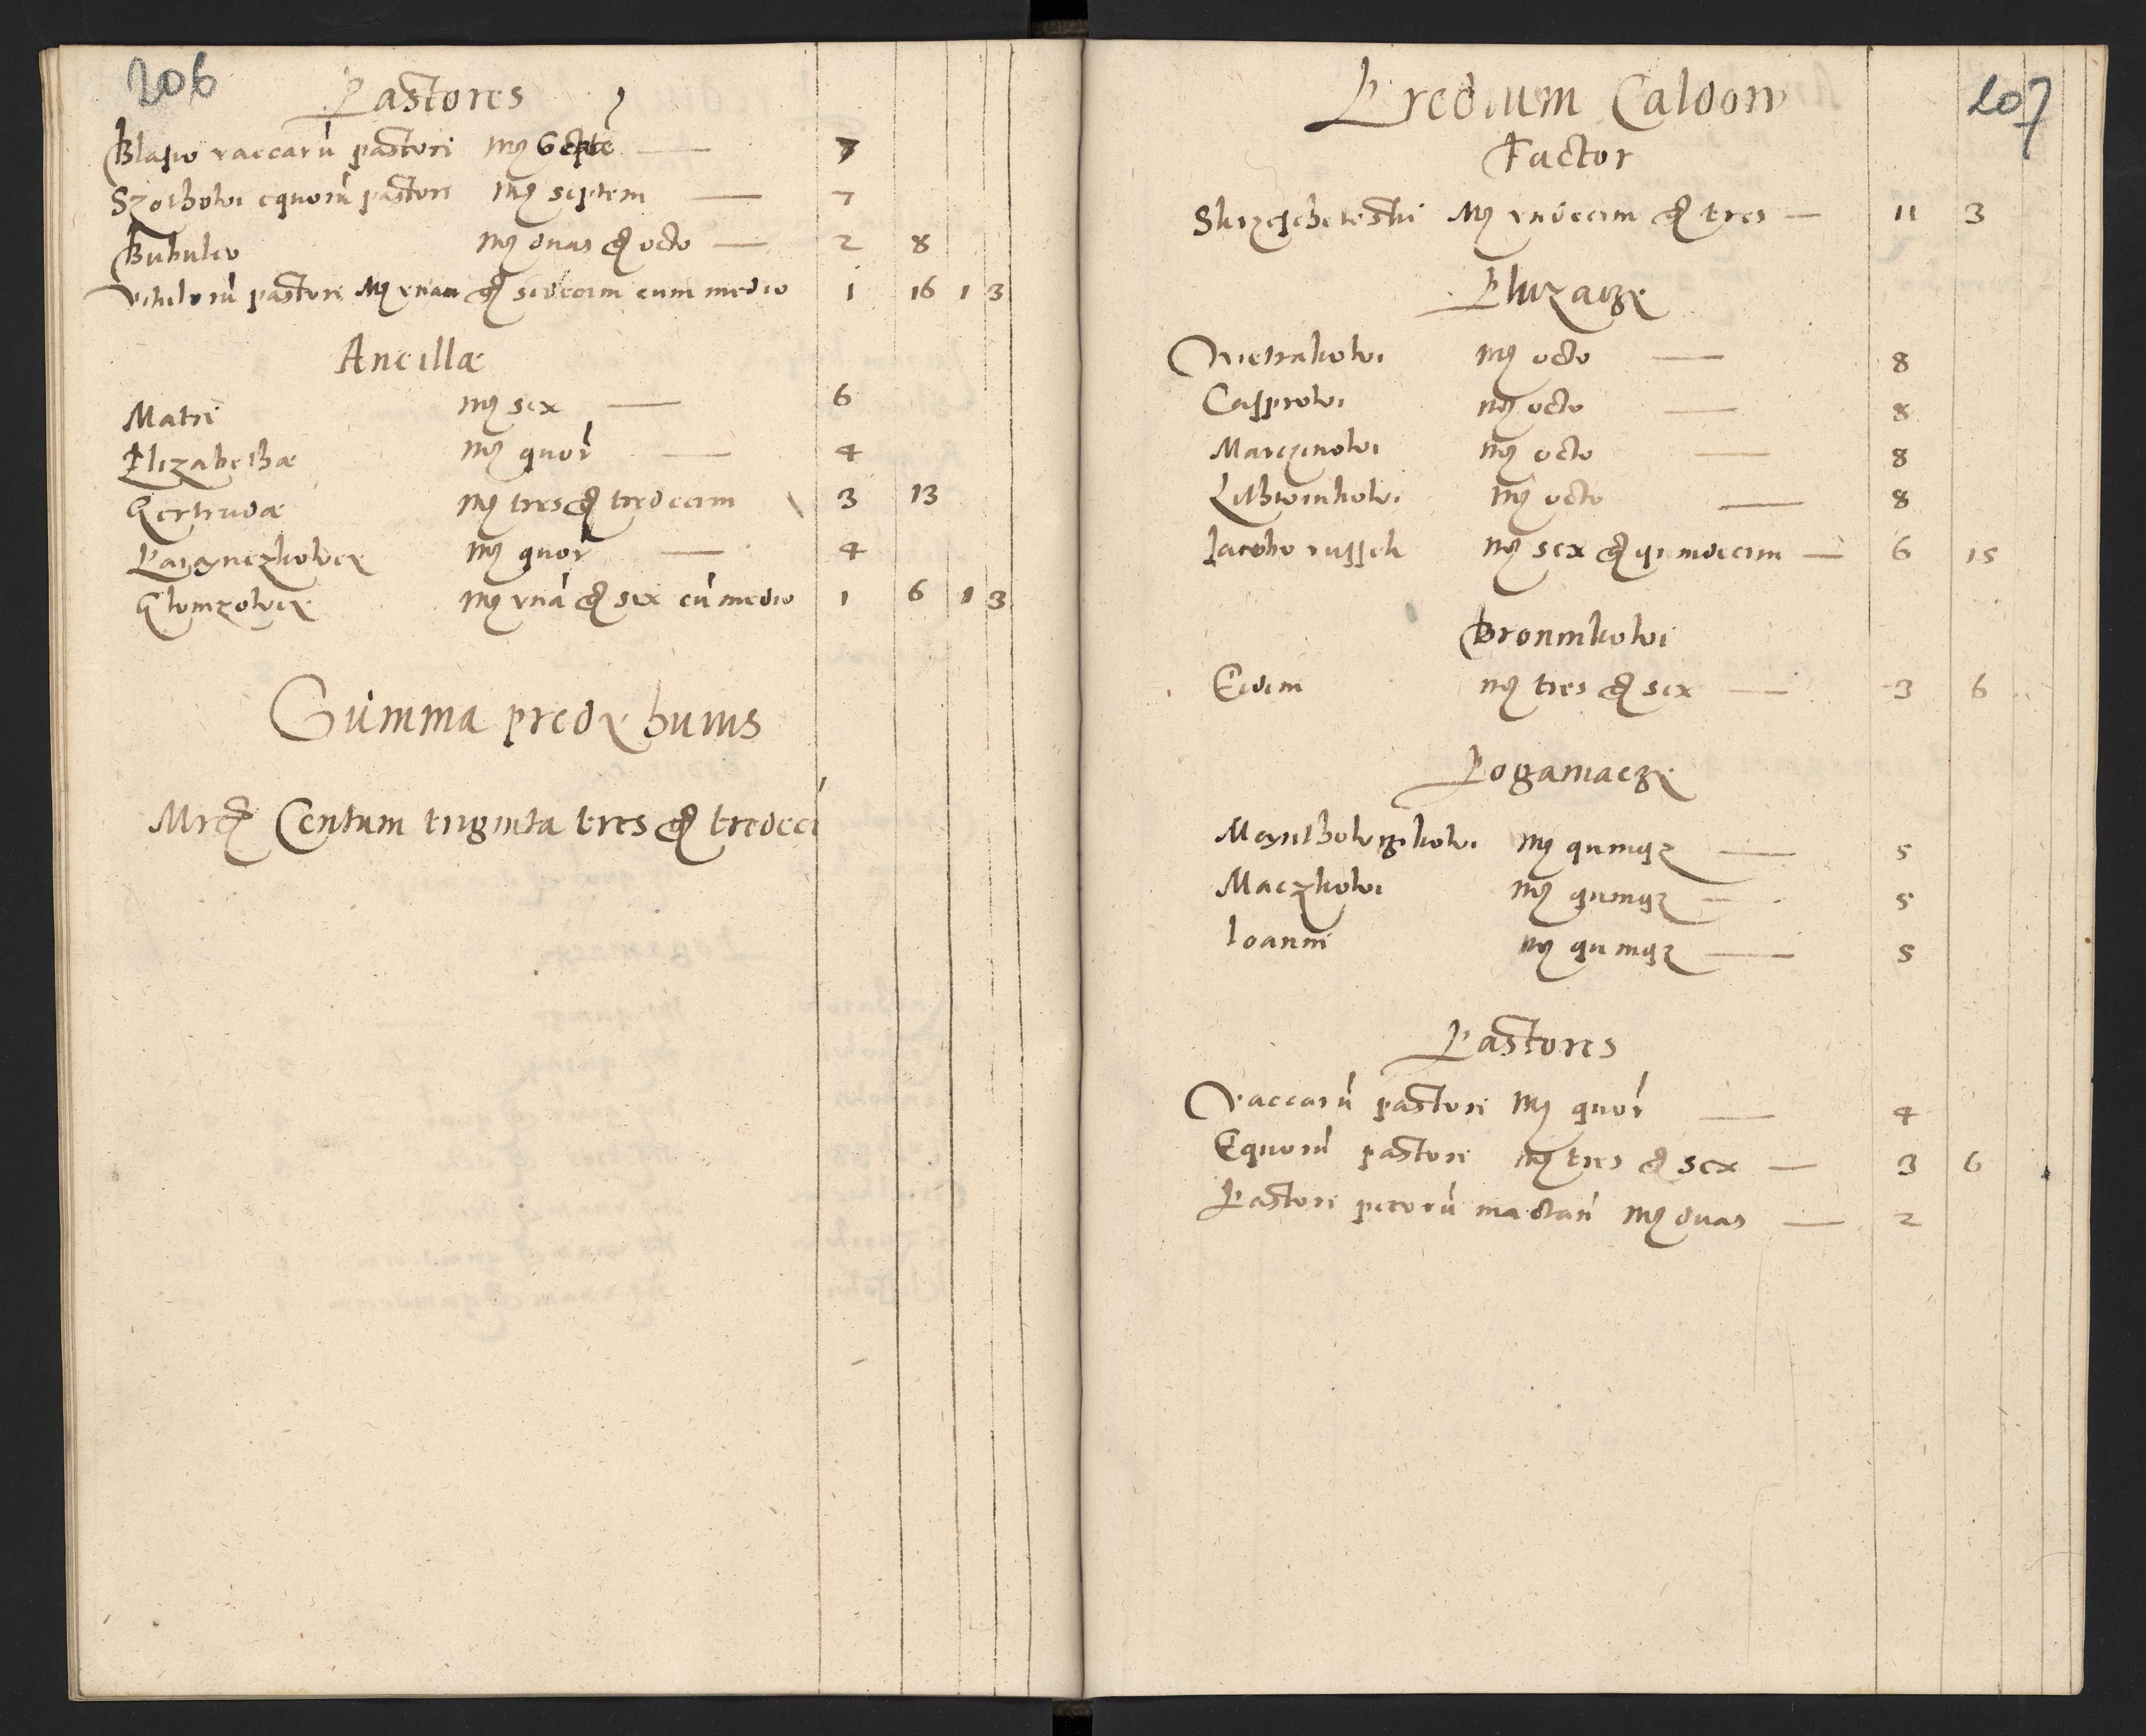 206
Pastores
Blasio vaccarū pastori Mr Septē — 7
Szotholwi equorū pastori Mr septem — 7
Bubulco Mr duas g octo — 2 8
Vitulorū pastori Mr vnam g sedecim cum medio 1 16 1 3
Ancillæ
Matri Mr sex — 6
Elizabethæ Mr quor — 4
Gertrudæ Mr tres g tredecim 3 13
Paiynczkowe Mr quor — 4
Glomzowe Mr vnā g sex cū medio 1 6 1 3
Summa predy huius
Mrg Centum triginta tres g tredecī
207
Predium Caldow
Factor
Mr vndecim g tres — 11 3
Pluzacze
Vietrakowi Mr octo — 8
Casprowi Mr octo — 8
Marczinowi Mr octo — 8
Mr octo — 8
Jacobo russek Mr sex g quindecim — 6 15
Broninkowi
Mr tres g sex — 3 6
Poganiacze
Mr quinqz — 5
Maczkowi Mr quinqz — 5
Ioanni Mr quinqz — 5
Pastores
Vaccarū pastori Mr quor — 4
Equorū pastori Mr tres g sex — 3 6
Pastori pecorū mactan Mr duas — 2